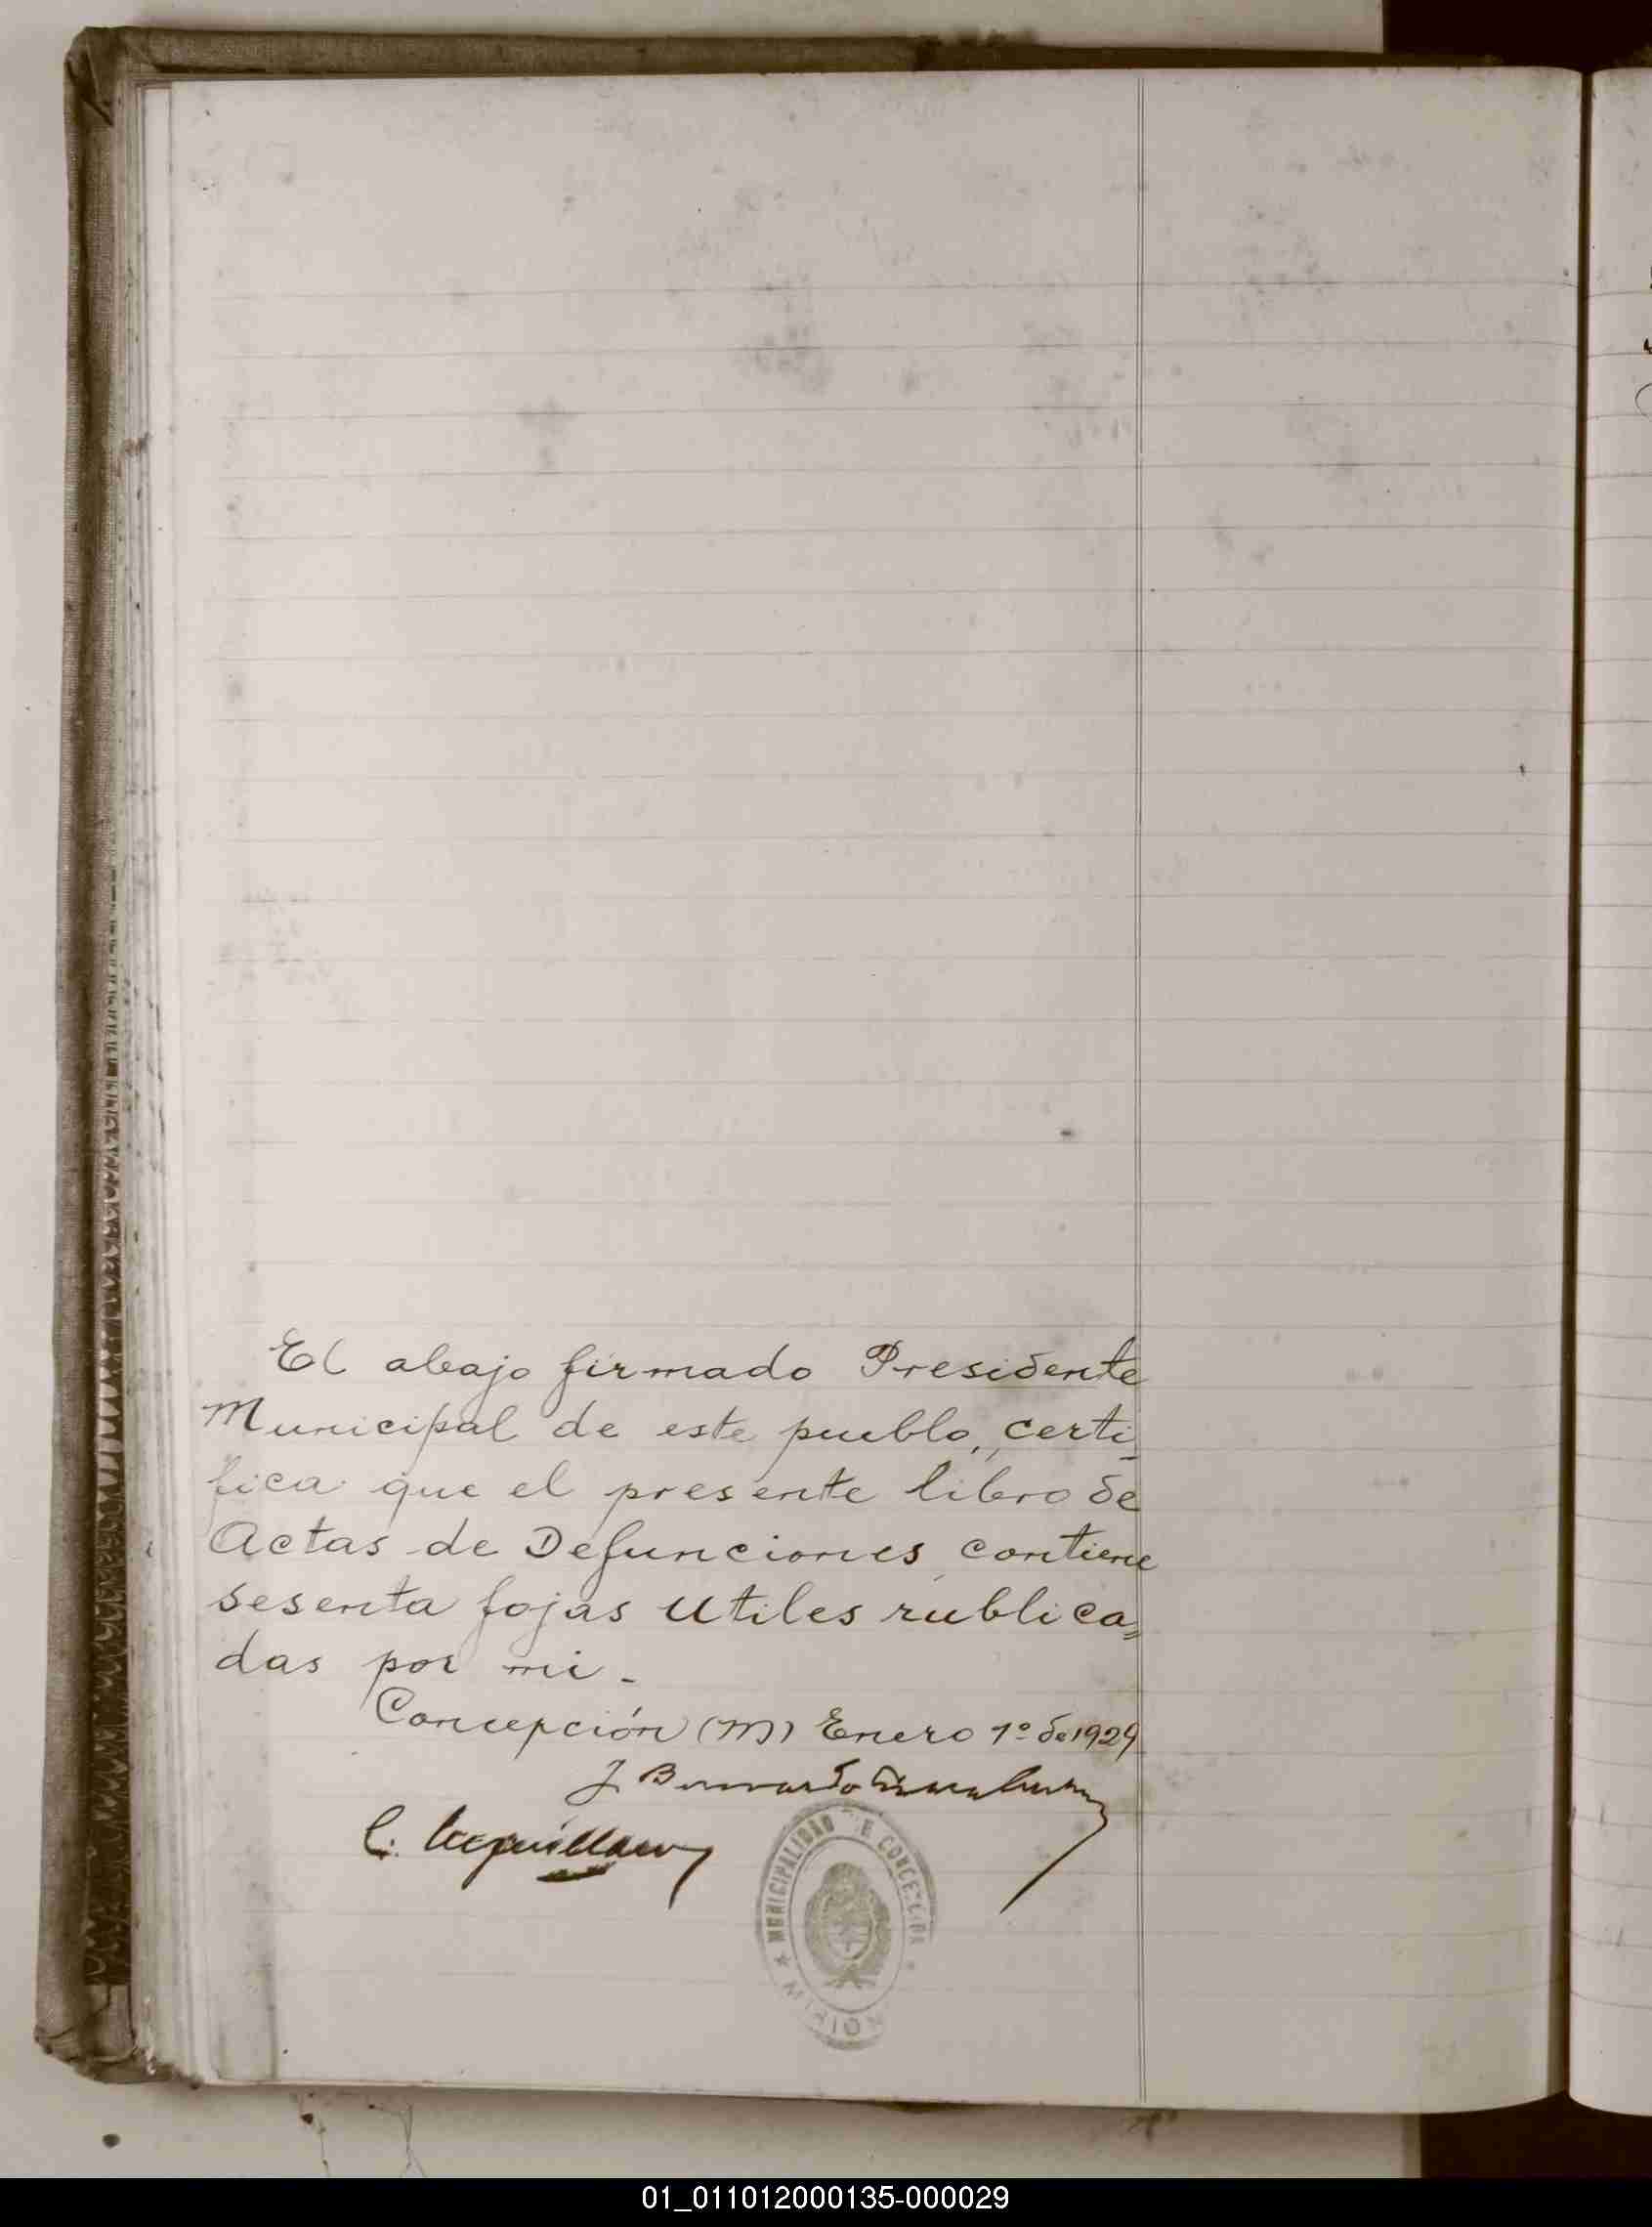 El abajo firmado Presidente
Municipal de este pueblo, certi-
fica que el presente libro de
Actas de Defunciones contiene
sesenta fojas utiles rublica=
das por mi -
Concepción (M) Enero 1º de 1929
J Bernardo
C.
MUNICIPALIDAD DE CONCEPCION
* MISIONES
01_011012000135-000029